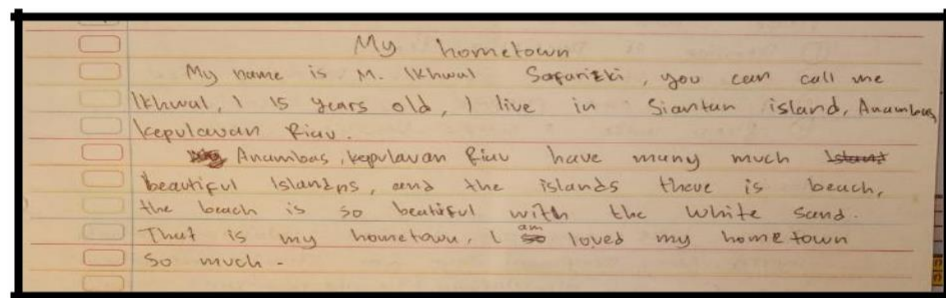 My hometown
My name is M. Ikhwal Safarizki, you can call me
Ikhwal, I 15 years old, I live in Siantan island, Anambas,
kepulauan Riau.
Anambas, kepulauan Riau have many much
beautiful Islands, and the islands there is beach,
the beach is so beatiful with the white sand.
That is my hometown, I am loved my home town
so much.